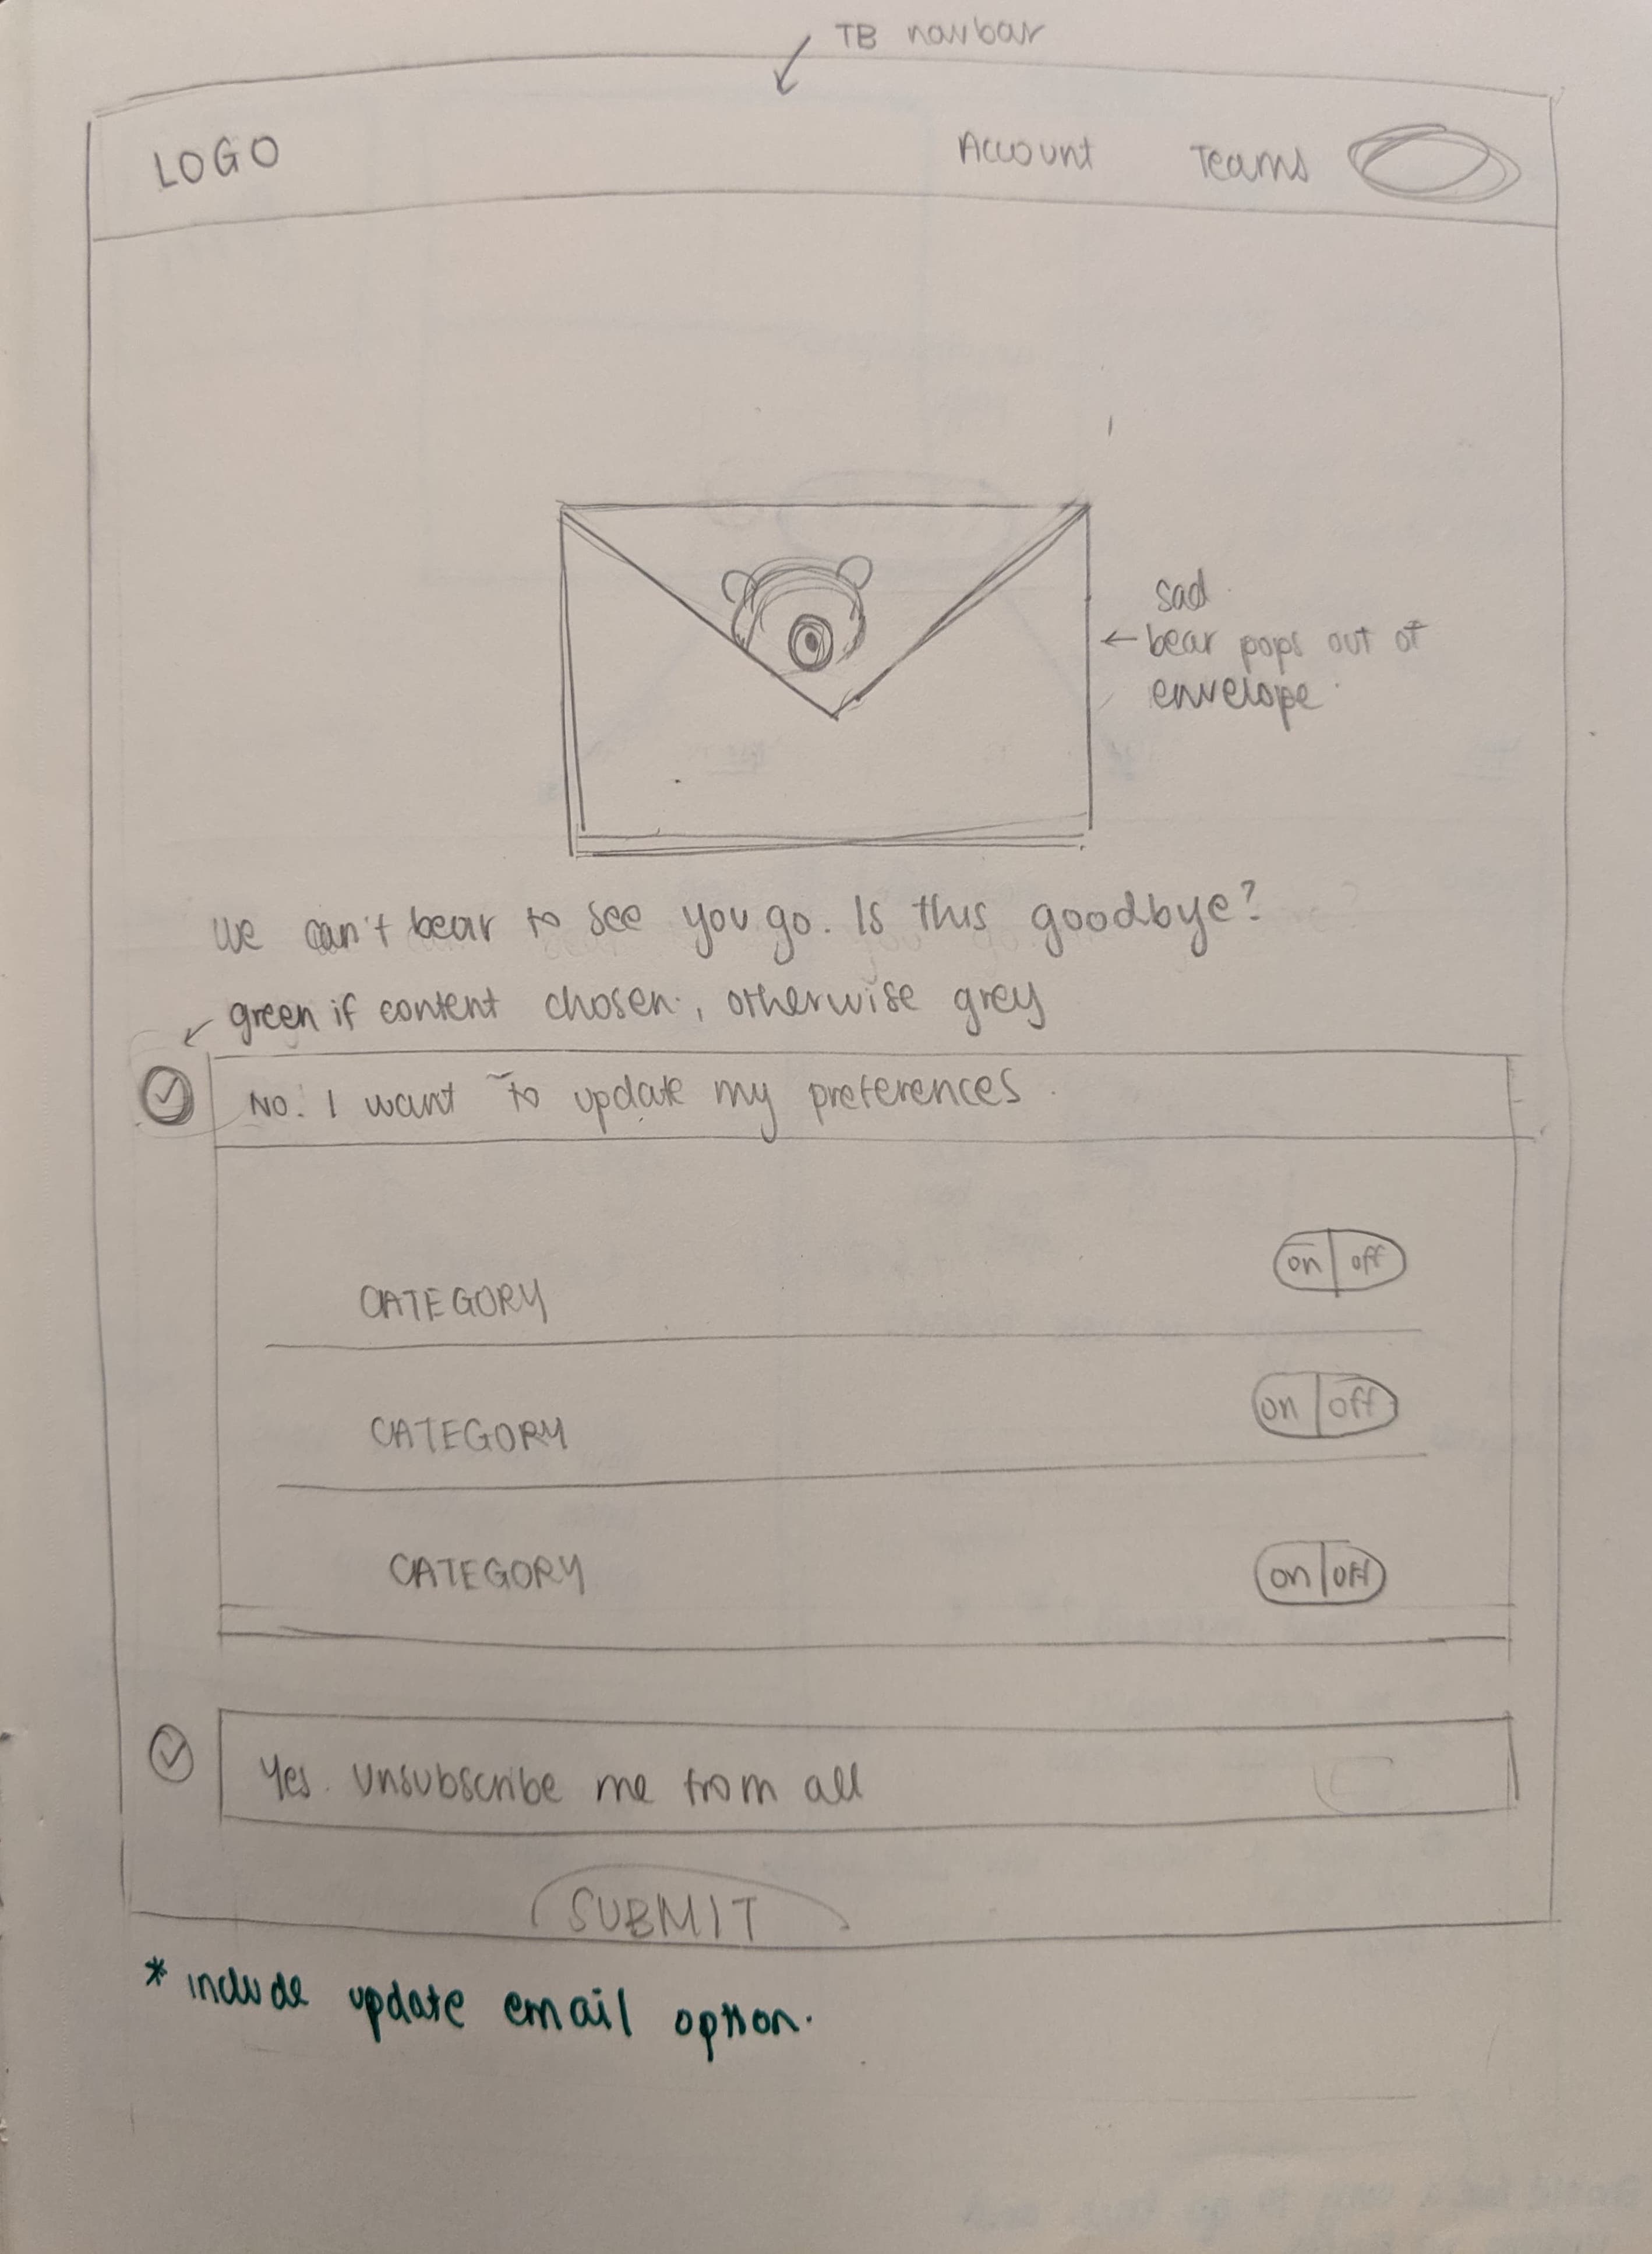 TB navbar
LOGO
Account
Teams
sad
bear pops out of
envelope
We can't bear to see you go. Is this goodbye?
green if content chosen, otherwise grey
No. I want to update my preferences.
CATEGORY
on off
CATEGORY
on off
CATEGORY
on off
Yes. Unsubscribe me from all
SUBMIT
* include update email option.